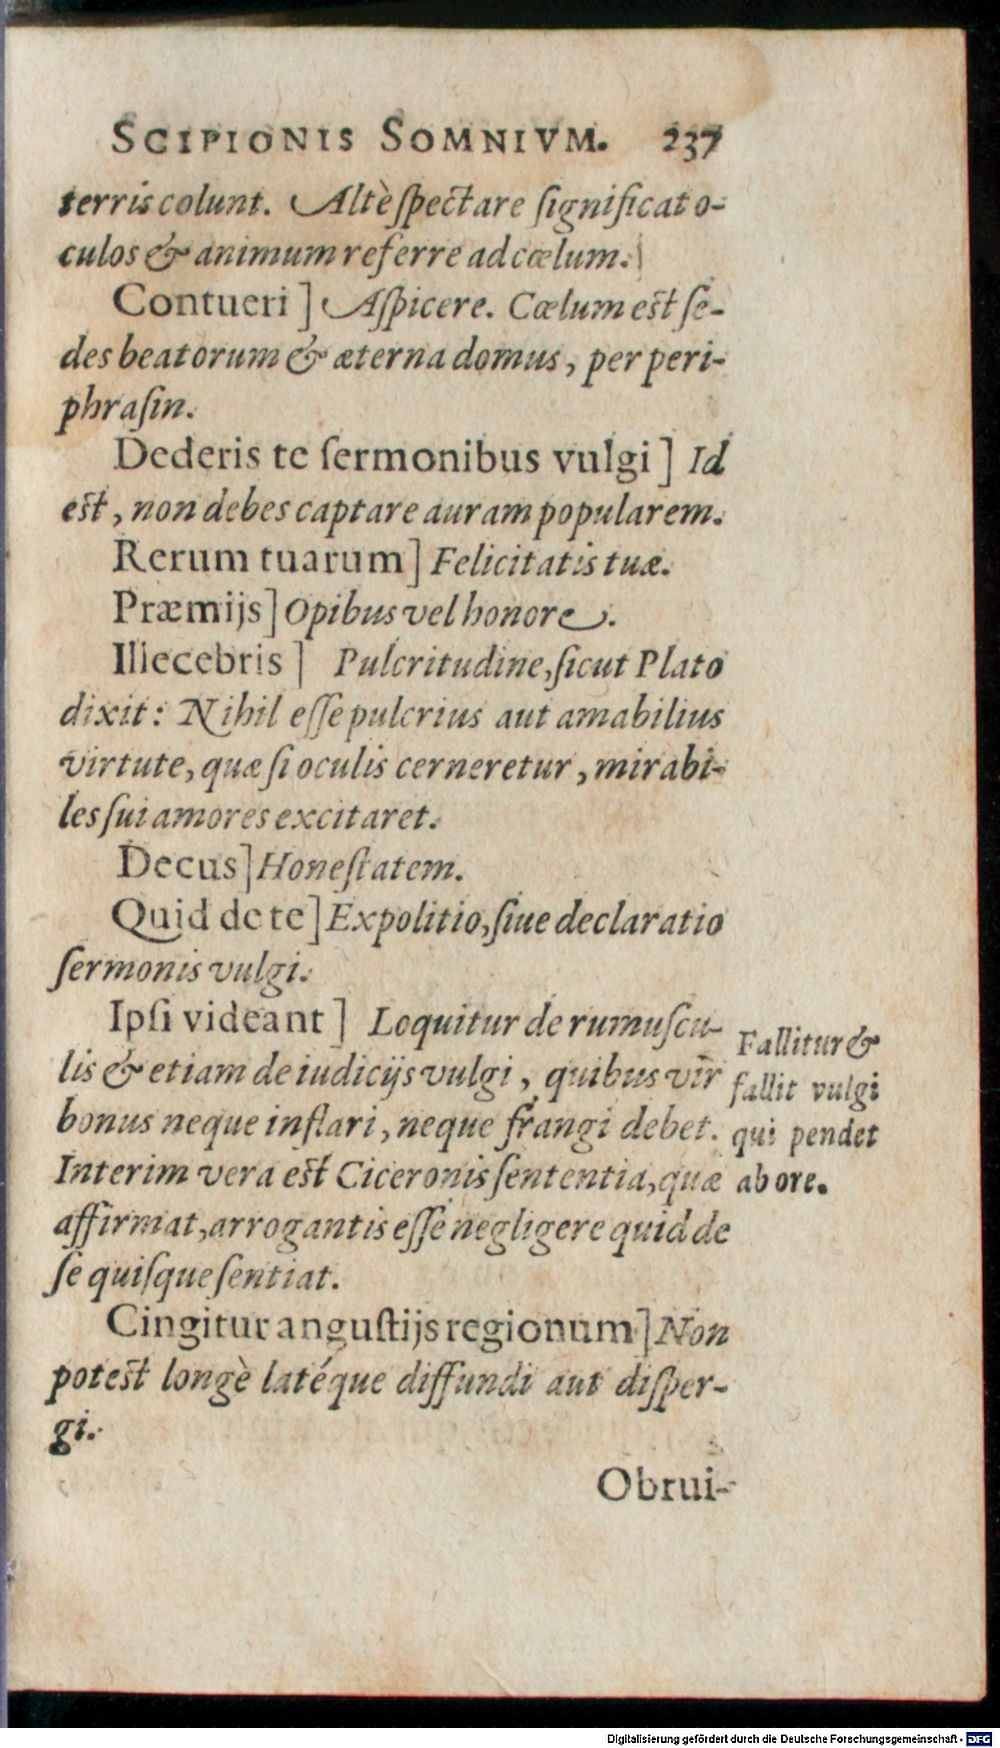 SCIPIONIS SOMNIVM. 237
terris colunt. Altè ſpectare ſignificat o-
culos & animum referre ad cœlum.
Contueri] Aſpicere. Cœlum est ſe-
des beatorum & æterna domus, per peri-
phraſin.
Dederis te ſermonibus vulgi] Id
est, non debes captare auram popularem.
Rerum tuarum] Felicitatis tuæ.
Præmijs] Opibus vel honore.
Illecebris] Pulcritudine, ſicut Plato
dixit: Nihil eſſe pulcrius aut amabilius
virtute, quæ ſi oculis cerneretur, mirabi-
les ſui amores excitaret.
Decus] Honeſtatem.
Quid de te] Expolitio, ſiue declaratio
ſermonis vulgi.
Ipſi videant] Loquitur de rumuſcu-
lis & etiam de iudicijs vulgi, quibus vir
bonus neque inflari, neque frangi debet.
Interim vera est Ciceronis ſententia, quæ
affirmat, arrogantis eſſe negligere quid de
ſe quiſque ſentiat.
Fallitur &
fallit vulgi
qui pendet
ab ore.
Cingitur anguſtijs regionum] Non
potest longè latéque diffundi aut diſper-
gi.
Obrui-
Digitalisierung gefördert durch die Deutsche Forschungsgemeinschaft - DFG